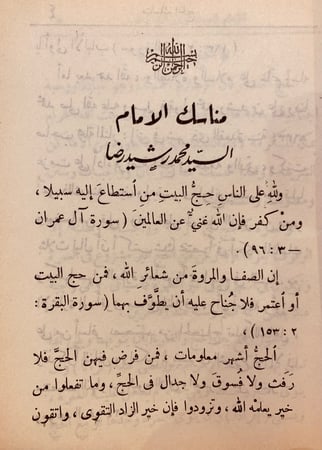 بسم الله الرحمن الرحيم
مناسك الامام
السيد محمد رشيد رضا
ولله على الناس حِجُّ البيتِ من أستطاعَ إليه سبيلا ،
ومن كفر فإن الله غنيٌّ عن العالمين ( سورة آل عمران
— ٣ : ٩٦ ) .
إن الصفا والمروة من شعائر الله ، فمن حج البيت
أو أعتمر فلا جُناح عليه أن يطوَّف بهما ( سورة البقرة :
٢ : ١٥٣ ) ،
الحجُّ أشهر معلومات ، فمن فرض فيهن الحجَّ فلا
رفَث ولا فُسوقَ ولا جدال في الحجِّ ، وما تفعلوا من
خير يعلمه الله ، وتزودوا فإن خير الزاد التقوى ، واتقون